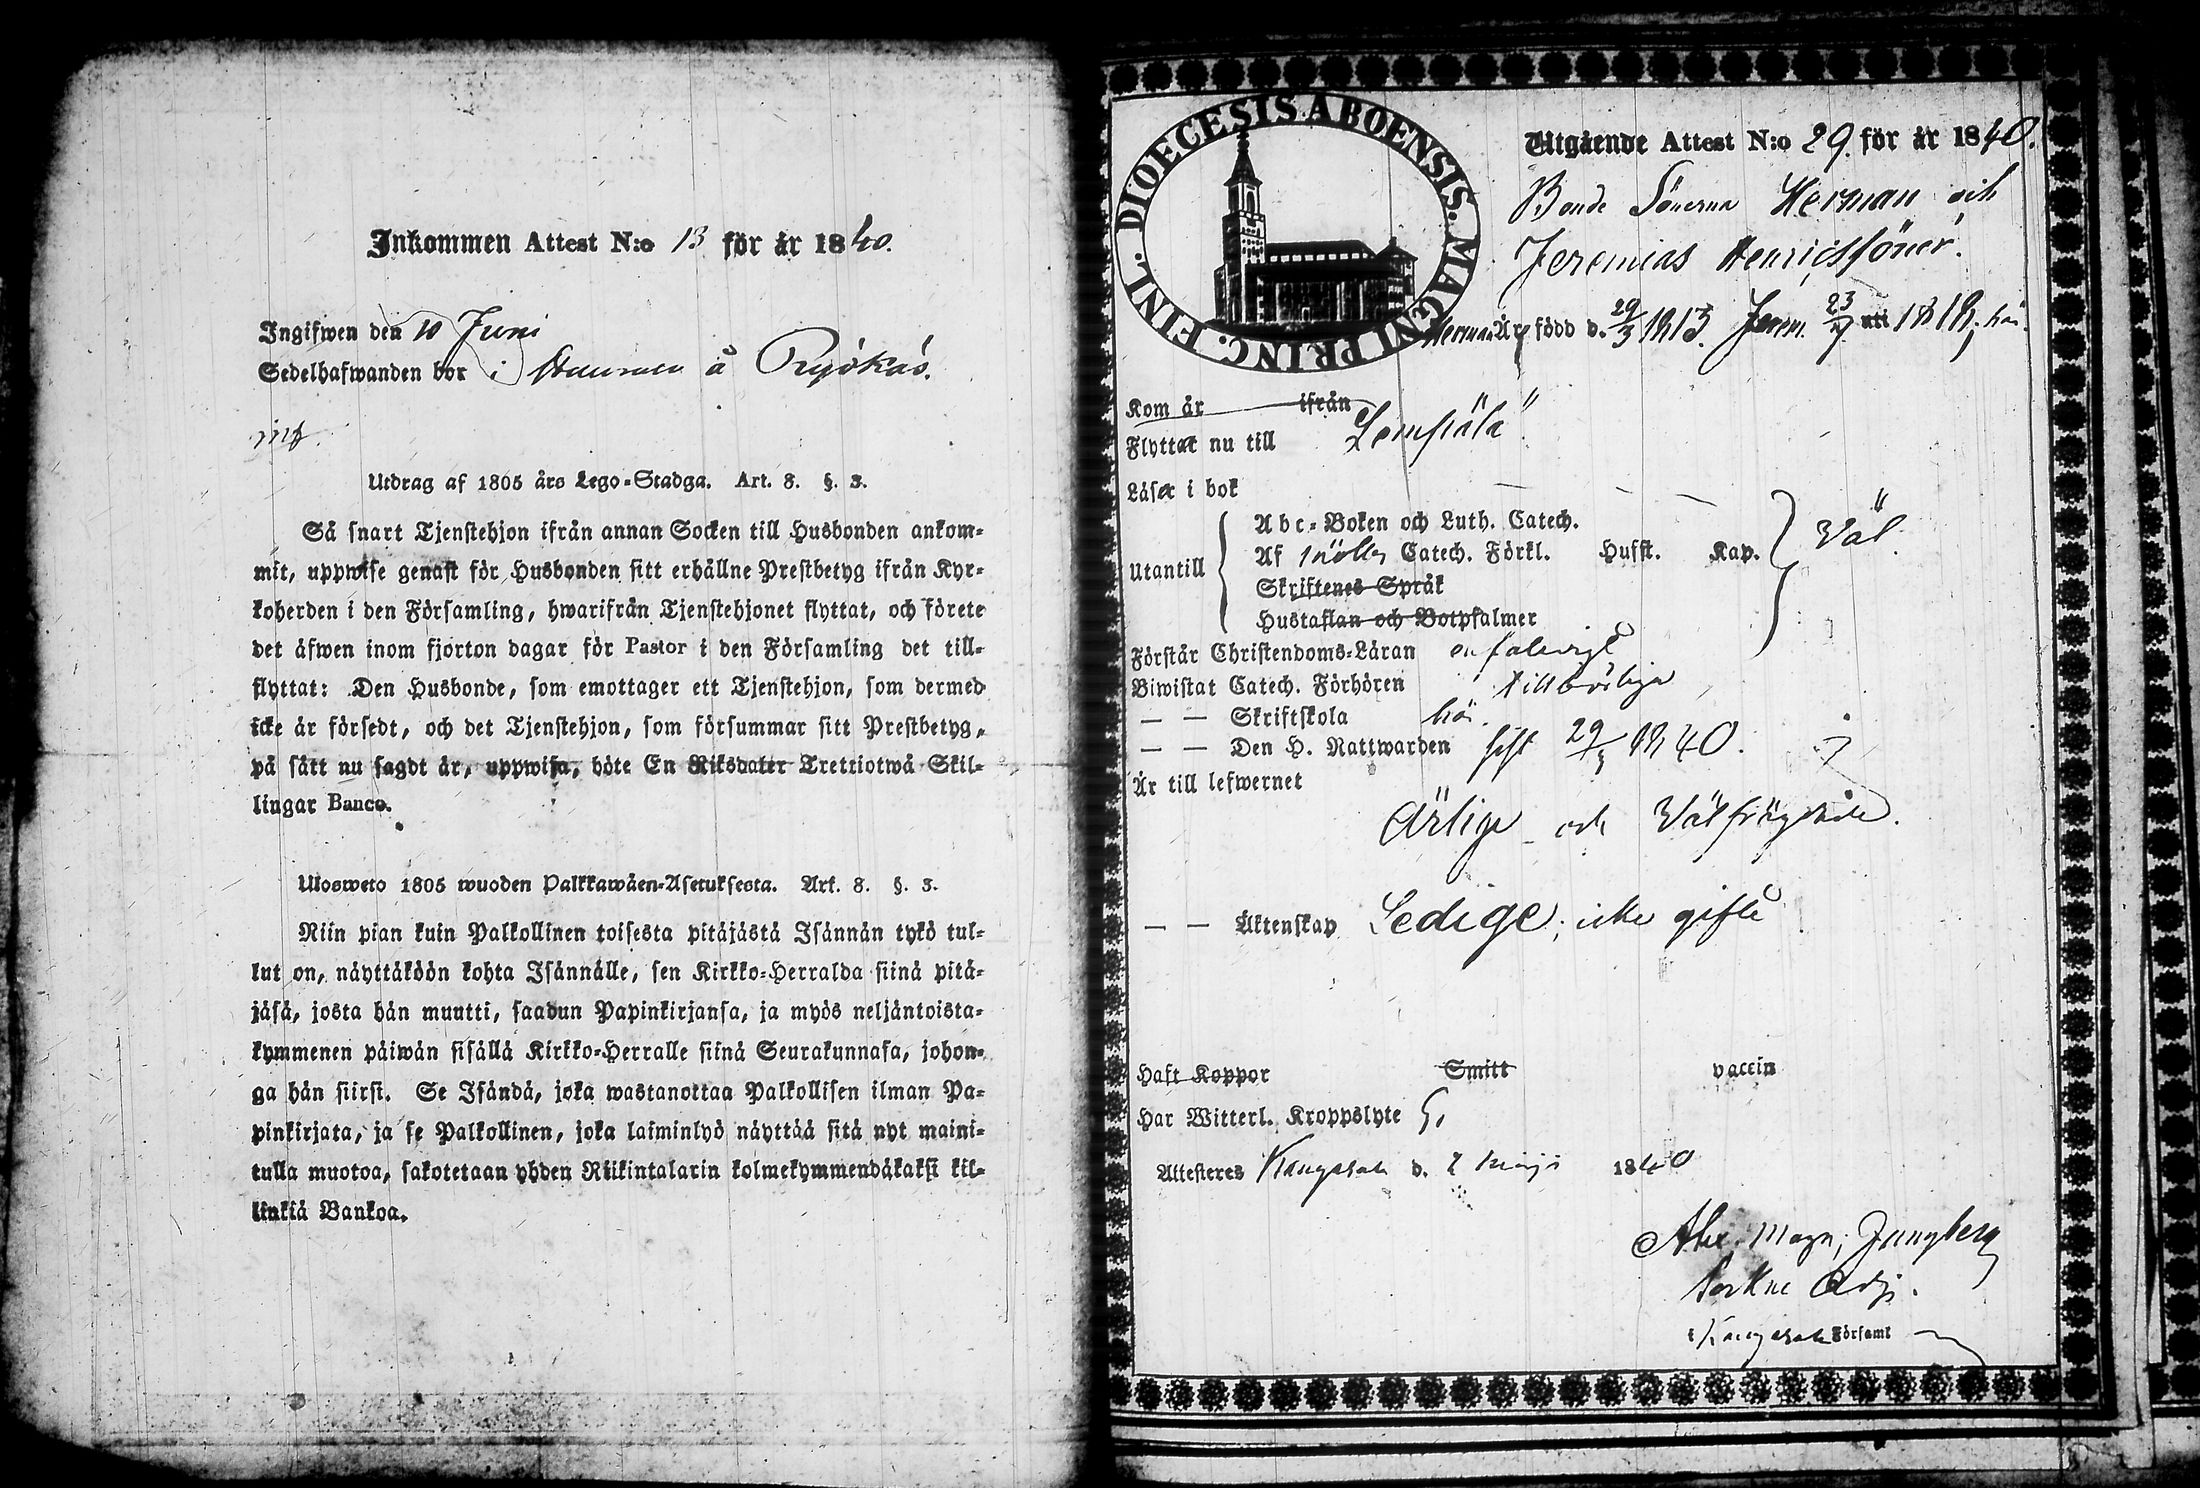 Inkommen Attest N:o 13 för år 1840.
Ingifwen den 10 Juni
Sedelhafwanden bor i å
Utdrag af 1805 års Lego-Stadga. Art. 8. §. 3.
Så snart Tjenstehjon ifrån annan Socken till Husbonden ankom-
mit, uppwise genast för Husbonden sitt erhållne Prestbetyg ifrån Kyr-
koherden i den Församling, hwarifrån Tjenstehjonet flyttat, och förete
det äfwen inom fjorton dagar för Pastor i den Församling det till-
flyttat: Den Husbonde, som emottager ett Tjenstehjon, som dermed
icke är försedt, och det Tjenstehjon, som försummar sitt Prestbetyg,
på sätt nu sagdt är, uppwisa, böte En Riksdaler Trettiotwå Skil-
lingar Banco.
Ulosweto 1805 wuoden Palkkawäen-Asetuksesta. Art. 8. §. 3.
Niin pian kuin Palkollinen toisesta pitäjästä Isännän tykö tul-
lut on, näyttäköön kohta Isännälle, sen Kirkko-Herralda siinä pitä-
jäsä, josta hän muutti, saadun Papinkirjansa, ja myös neljäntoista-
kymmenen päiwän sisällä Kirkko-Herralle siinä Seurakunnasa, johon-
ga hän siirsi. Se Isändä, joka wastanottaa Palkollisen ilman Pa-
pinkirjata, ja se Palkollinen, joka laiminlyö näyttää sitä nyt maini-
tulla muotoa, sakotetaan yhden Riikintalarin kolmekymmendäkaksi kil-
linkiä Bankoa.
DIOECESIS ABOENSIS. MAGNI PRINC. FINL.
Utgående Attest N:o 29. för år 1840.
Bonde Sönerna Herman och
Jeremias Henricssöner.
Herman Är född d. 29/3 1813. Jerem. 23/7 uti 1818, här.
Kom år ifrån
Flyttar nu till Lempäälä
Läser i bok
Utantill
Abc-Boken och Luth. Catech.
Af Möllers Catech. Förkl. Husst. Kap.
Skriftenes Språk
Hustaflan och Botpsalmer
Väl.
Förstår Christendoms-Läran enfaldigt
Biwistat Catech. Förhören tillbörliga
— — Skriftskola här.
— — Den H. Nattwarden sist 29/3 1840.
Är till lefwernet
Ärlige och Välfrägdade.
— — Äktenskap Ledige; icke gifte
Haft Koppor Smitt vaccin
Har Witterl. Kroppslyte
Attesteres Kangasala d. 2 Maji 1840
Alex. Magn. Jungberg
Sockne Adj.
i Kangasala Församl